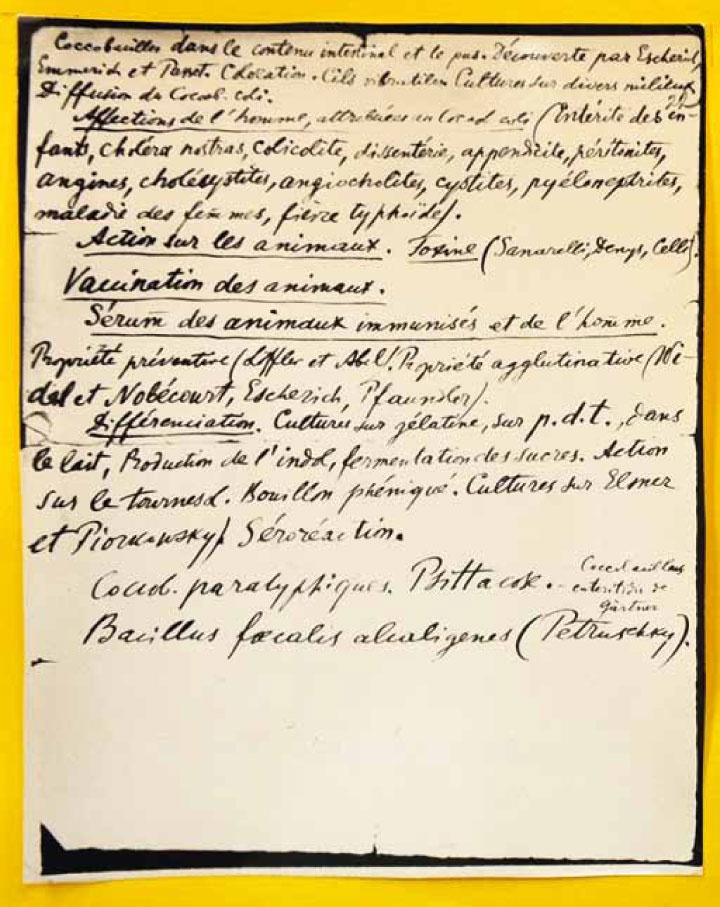 Coccobacilles dans le contenu intestinal et le pus. Découverte par Escherich,
Emmerich et Panet. Coloration. Cils vibratiles Cultures sur divers milieux
Diffusion du Cocob. coli.
Affections de l'homme, attribuées au Cocob coli (Entérite des en-
fants, choléra nostras, colicolite, dissenterie, appendicite, péritonites,
angines, cholésystites, angiocholites, cystites, pyélonephrites,
maladie des femmes, fièvre typhoïde).
Action sur les animaux. Toxine (Sanarelli, Denys, Celli).
Vaccination des animaux.
Sérum des animaux immunisés et de l'homme.
Propriété préventive (Löffler et Abel). Propriété agglutinative (Wi-
dal et Nobécourt, Escherich, Pfaundler).
Différenciation. Cultures sur gélatine, sur p.d.t., dans
le lait, Production de l'indol, fermentation des sucres. Action
sur le tournesol. Bouillon phéniqué. Cultures sur Elsner
et Piorkowsky). Séroréaction.
Cocob. paratyphiques. Psittacose. - Coccobacillus
enteritidis de
Gärtner
Bacillus fœcalis alcaligenes (Petruschky).